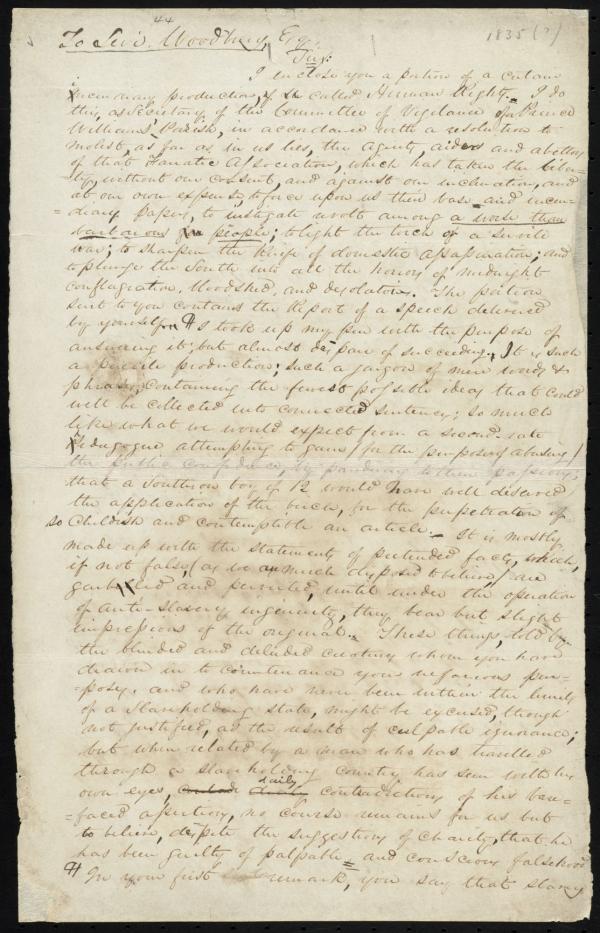 44
To Levi. Woodbury, Esq.
1835 (?)
Sir:
I inclose you a portion of a certain
incendiary production, called Human Rights. I do
this, as Secretary of the Committee of Vigilance for Prince
Williams Parish, in accordance with a resolution to
molest, as far as in us lies, the agents, aiders and abettors
of that Fanatic Association, which has taken the liber-
-ty, without our consent, and against our inclination, and
at our own expense to force upon us their base and incen-
-diary Papers, to instigate revolt among a worse than
barbarous people; to light the torch of a servile
war; to sharpen the knife of domestic assassination; and
to plunge the South into all the horrors of midnight
conflagration, bloodshed, and desolation. The portion
sent to you contains the Report of a speech delivered
by yourself. I took up my pen with the purpose of
answering it; but almost despair of succeeding. It is such
a puerile production; such a jargon of mere words &
phrases, containing the fewest possible ideas that could
well be collected into connected sentences; so much
like what we would expect from a second-rate
Pedagogue attempting to gain (for the purpose of abusing)
the public confidence, by pandering to their passions,
that a Southern boy of 12 would have well deserved
the application of the birch, for the perpetration of
so childish and contemptible an article. It is mostly
made up with the statement of pretended facts, which,
if not false, (as we are much disposed to believe) are
garbled and perverted, until under the operation
of anti-slavery ingenuity, they bear but slight
impressions of the original. These things, told by
the blinded and deluded creatures whom you have
drawn in to countenance your nefarious pur-
-poses, and who have never been within the limits
of a slaveholding state, might be excused, though
not justified, as the result of culpable ignorance;
but when related by a man who has travelled
through a slaveholding country, has seen with his
own eyes, daily contradictions of his bare-
-faced assertions, no course remains for us but
to believe, despite the suggestions of charity, that he
has been guilty of palpable and conscious falsehood
In your first remark, you say that slavery